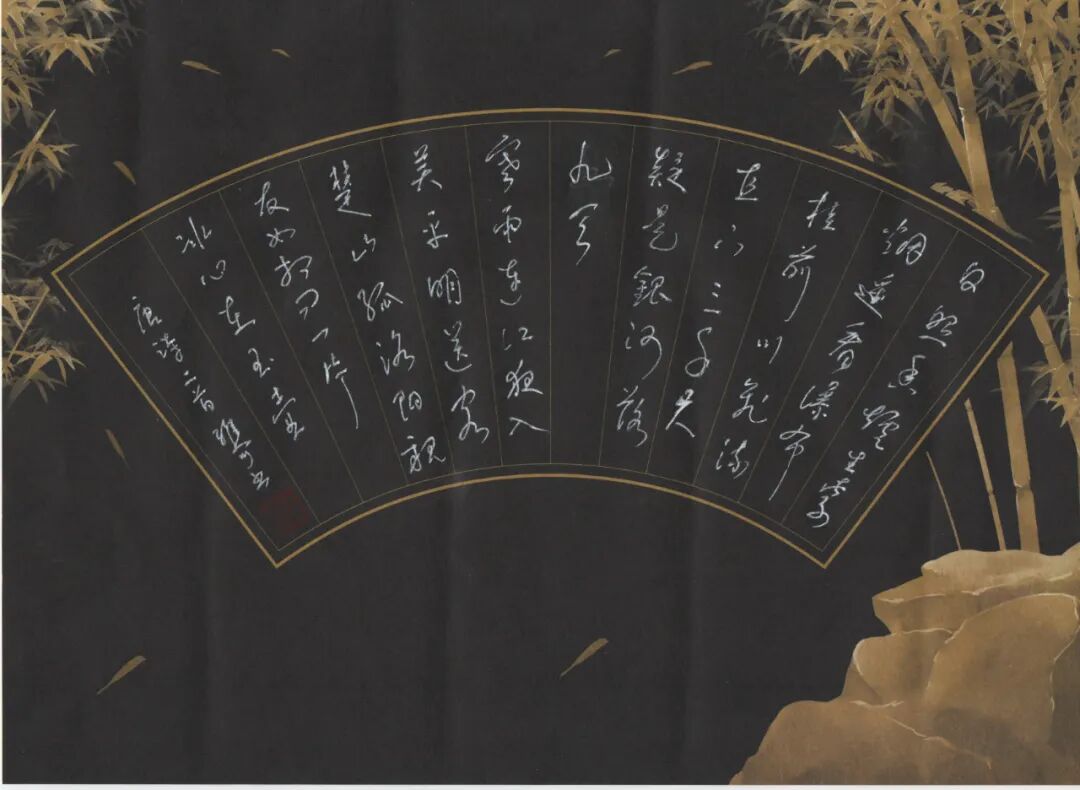 日照香爐生紫
烟遥看瀑布
挂前川飛流
直下三千尺
疑是銀河落
九天
寒雨連江夜入
吴平明送客
楚山孤洛阳親
友如相問一片
冰心在玉壺
唐詩二首雅书